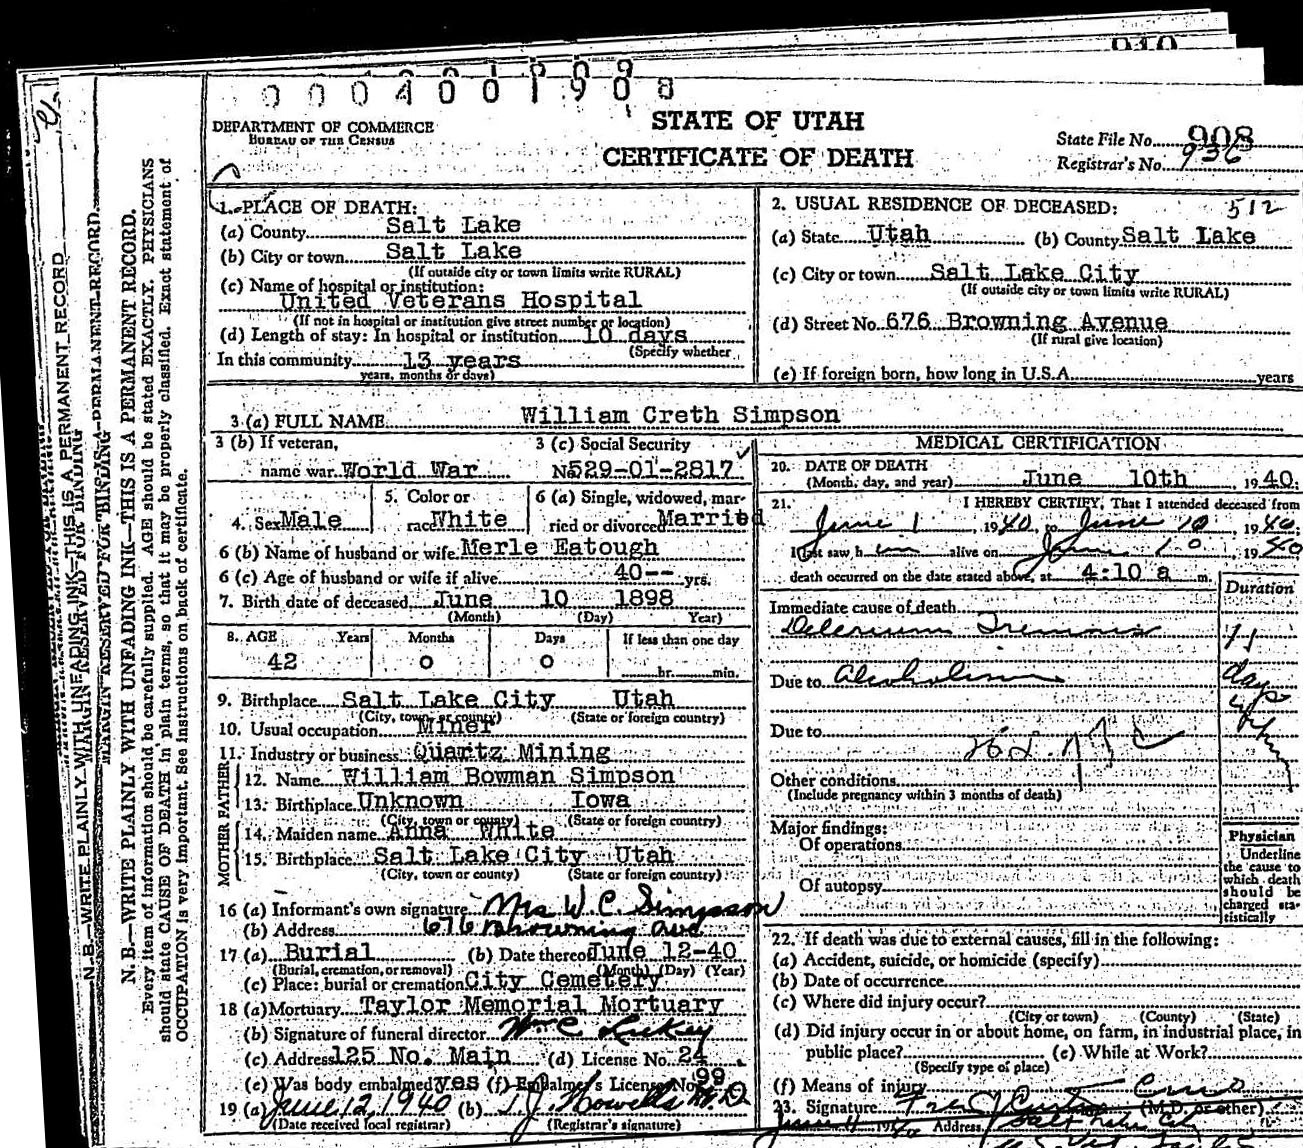 910
0004001908
DEPARTMENT OF COMMERCE
BUREAU OF THE CENSUS
STATE OF UTAH
CERTIFICATE OF DEATH
State File No. 908
Registrar's No. 936
N. B.—WRITE PLAINLY WITH UNFADING INK—THIS IS A PERMANENT RECORD
MARGIN RESERVED FOR BINDING
N. B.—WRITE PLAINLY WITH UNFADING INK—THIS IS A PERMANENT RECORD.
Every item of information should be carefully supplied. AGE should be stated EXACTLY. PHYSICIANS
should state CAUSE OF DEATH in plain terms, so that it may be properly classified. Exact statement of
OCCUPATION is very important. See instructions on back of certificate.
1. PLACE OF DEATH:
(a) County Salt Lake
(b) City or town Salt Lake
(If outside city or town limits write RURAL)
(c) Name of hospital or institution:
United Veterans Hospital
(If not in hospital or institution give street number or location)
(d) Length of stay: In hospital or institution 10 days
(Specify whether
In this community 13 years
years, months or days)
2. USUAL RESIDENCE OF DECEASED: 512
(a) State Utah (b) County Salt Lake
(c) City or town Salt Lake City
(If outside city or town limits write RURAL)
(d) Street No. 676 Browning Avenue
(If rural give location)
(e) If foreign born, how long in U.S.A. years
3 (a) FULL NAME William Creth Simpson
3 (b) If veteran,
name war World War
3 (c) Social Security
No 529-01-2817
4. Sex Male
5. Color or
race White
6 (a) Single, widowed, mar-
ried or divorced Married
6 (b) Name of husband or wife Merle Eatough
6 (c) Age of husband or wife if alive 40-- yrs.
7. Birth date of deceased June 10 1898
(Month) (Day) Year)
8. AGE Years Months Days If less than one day
42 0 0 hr. min.
9. Birthplace Salt Lake City Utah
(City, town or county) (State or foreign country)
10. Usual occupation Miner
11. Industry or business Quartz Mining
FATHER
12. Name William Bowman Simpson
13. Birthplace Unknown Iowa
(City, town or county) (State or foreign country)
MOTHER
14. Maiden name Anna White
15. Birthplace Salt Lake City Utah
(City, town or county) (State or foreign country)
16 (a) Informant's own signature Mrs W. C. Simpson
(b) Address 676 Browning Ave
17 (a) Burial (b) Date thereof June 12-40
(Burial, cremation, or removal) (Month) (Day) (Year)
(c) Place: burial or cremation City Cemetery
18 (a) Mortuary Taylor Memorial Mortuary
(b) Signature of funeral director Wm C Luckey
(c) Address 125 No. Main (d) License No. 24
(e) Was body embalmed yes (f) Embalmer's License No 99
19 (a) June 12, 1940 (b) T. J. Howells M. D.
(Date received local registrar) (Registrar's signature)
MEDICAL CERTIFICATION
20. DATE OF DEATH
(Month, day, and year) June 10th, 1940.
21. I HEREBY CERTIFY, That I attended deceased from
June 1, 1940 to June 10, 1940.
I last saw him alive on June 10 1940
death occurred on the date stated above, at 4:10 a m.
Duration
Immediate cause of death
Delerium Tremens
11
days
Due to Alcoholism
Due to
Other conditions
(Include pregnancy within 3 months of death)
Major findings:
Of operations
Of autopsy
Physician
Underline
the cause to
which death
should be
charged sta-
tistically
22. If death was due to external causes, fill in the following:
(a) Accident, suicide, or homicide (specify)
(b) Date of occurrence
(c) Where did injury occur?
(City or town) (County) (State)
(d) Did injury occur in or about home, on farm, in industrial place, in
public place? (e) While at Work?
(Specify type of place)
(f) Means of injury
23. Signature (M.D. or other)
Address Salt Lake City